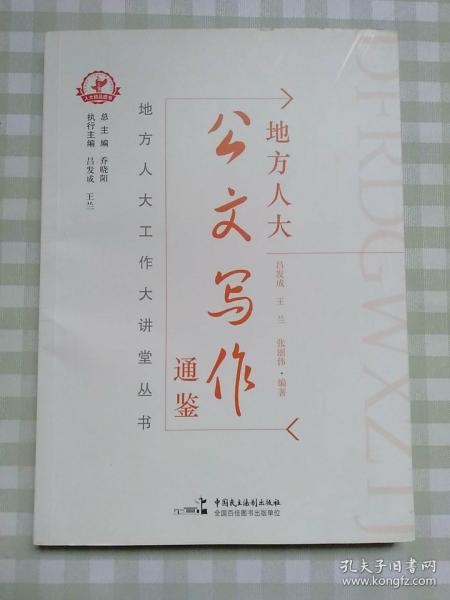 人大精品图书
总主编 乔晓阳
执行主编 吕发成 王兰
地方人大工作大讲堂丛书
地方人大
公文写作
通鉴
吕发成 王兰 张丽伟·编著
DFRDGWXZTJ
中国民主法制出版社
全国百佳图书出版单位
孔夫子旧书网
www.kongfz.com